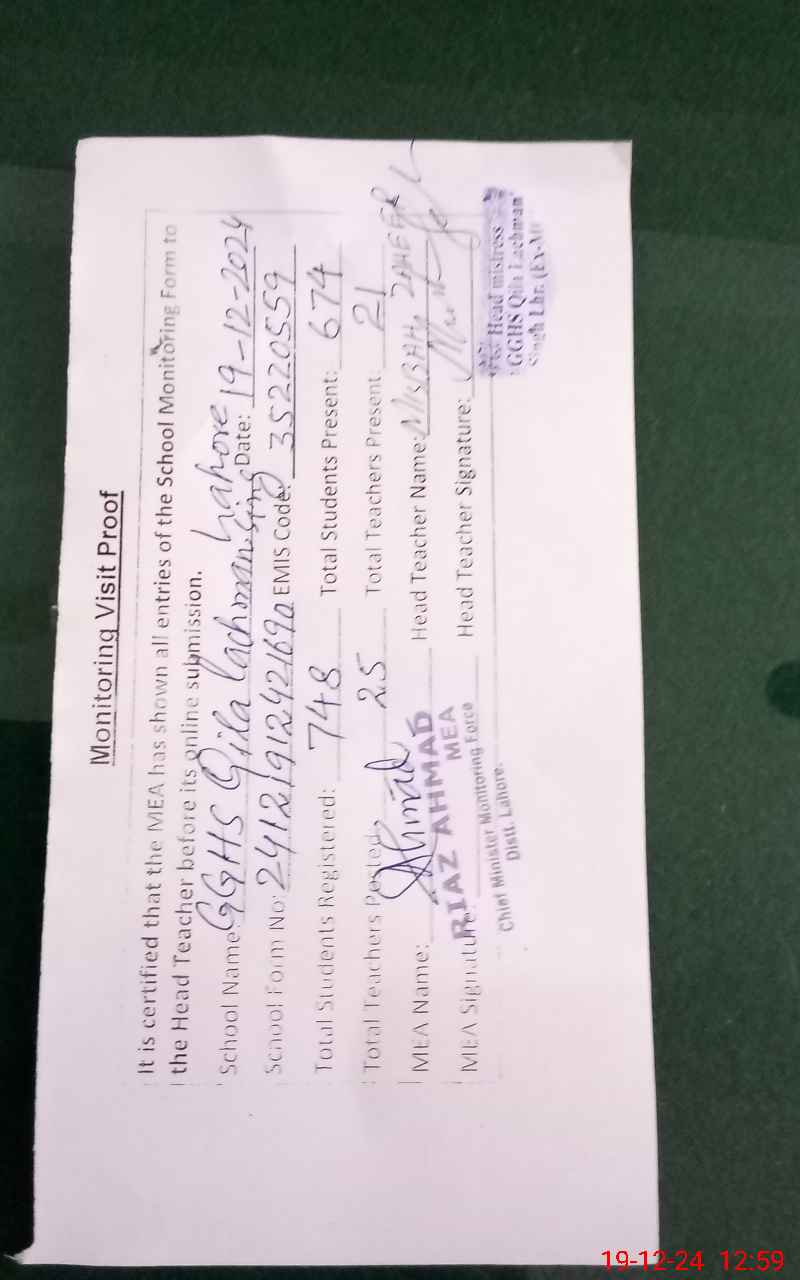 Monitoring Visit Proof
It is certified that the MEA has shown all entries of the School Monitoring Form to
the Head Teacher before its online submission.
School Name: GGHS Qila Lachman Sing Lahore Date: 19-12-2024
School Form No: 2412191242169 EMIS Code: 35220559
Total Students Registered: 748 Total Students Present: 674
Total Teachers Posted: 25 Total Teachers Present: 21
MEA Name: Ahmad Head Teacher Name: MISBAH ZAHEER
MEA Signature: Head Teacher Signature:
RIAZ AHMAD
MEA
Chief Minister Monitoring Force
Distt. Lahore.
Head mistress
GGHS Qila Lachman
Singh Lhr.
19-12-24 12:59